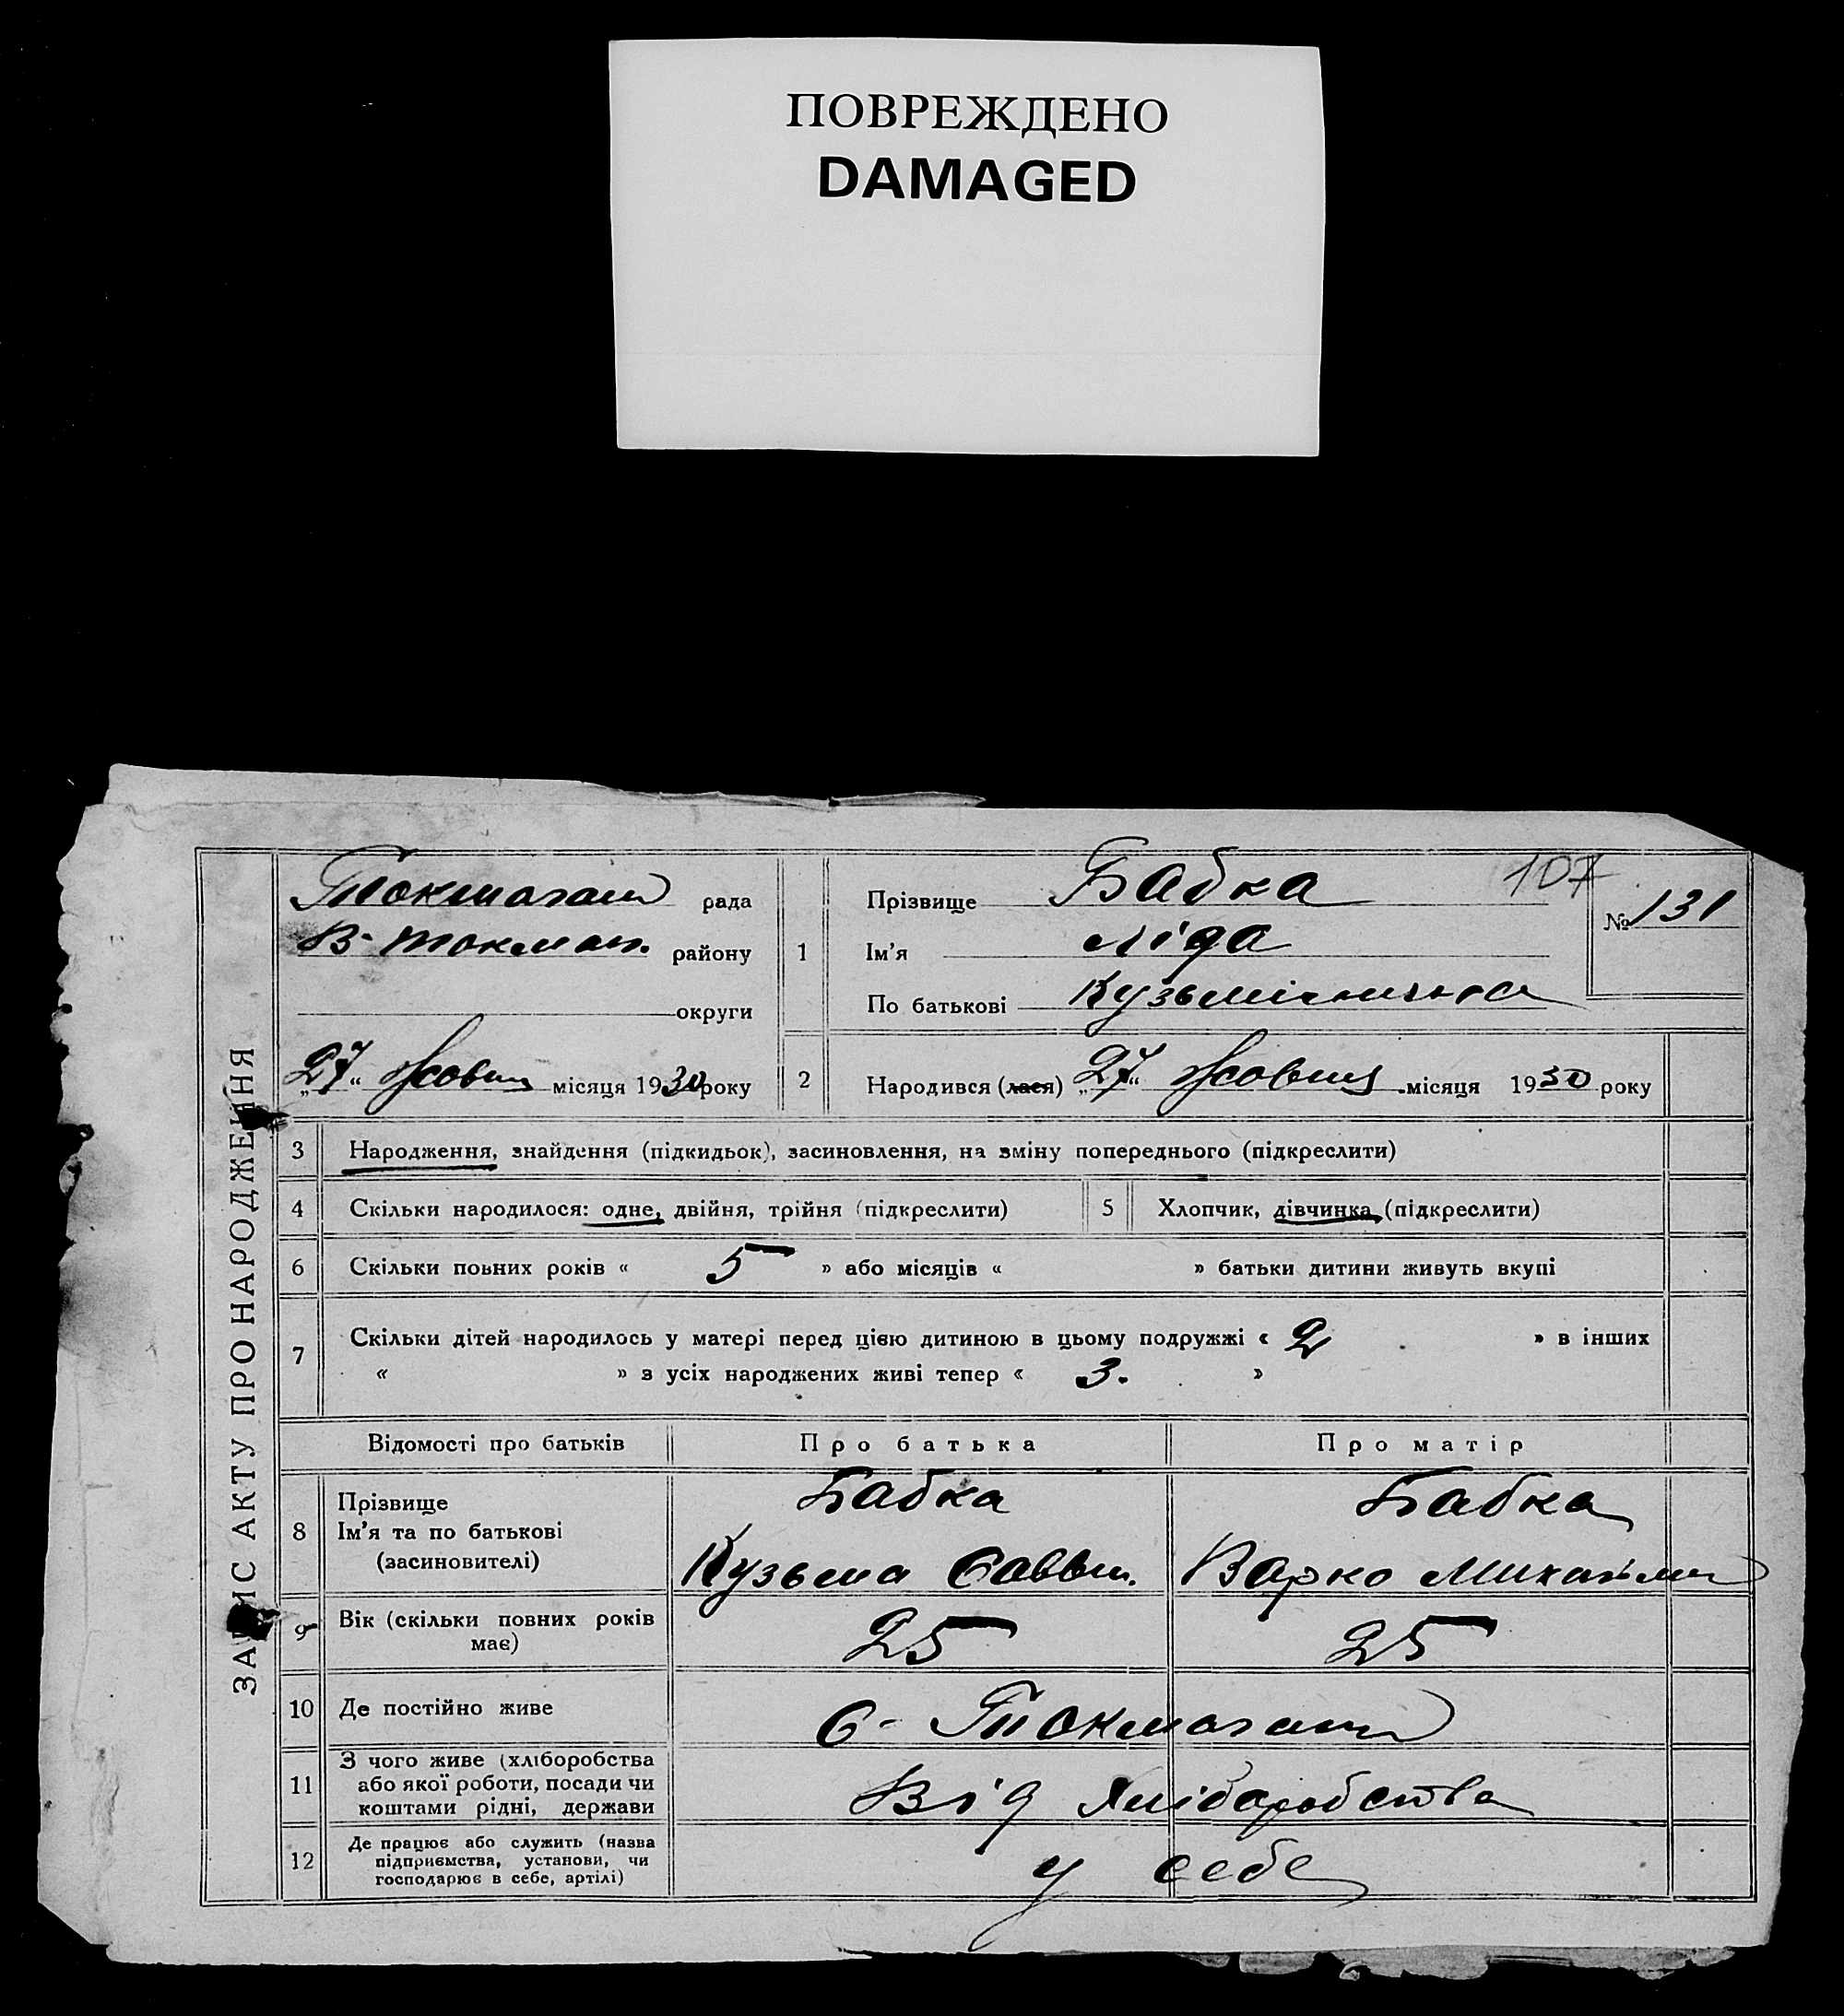 ПОВРЕЖДЕНО
DAMAGED
ЗАПИС АКТУ ПРО НАРОДЖЕННЯ
рада
В-Токмач. району
округи
27 “ Жовтн місяця 1930 року
107
№ 131
1
Прізвище Бабка
Ім'я Ліда
По батькові
2 Народився (лася) „ 27 “ Жовтня місяця 1930 року
3 Народження, знайдення (підкидьок), засиновлення, на зміну попереднього (підкреслити)
4 Скільки народилося: одне, двійня, трійня (підкреслити) 5 Хлопчик, дівчинка (підкреслити)
6 Скільки повних років « 5 » або місяців « » батьки дитини живуть вкупі
7 Скільки дітей народилось у матері перед цією дитиною в цьому подружжі « 2 » в інших
« » з усіх народжених живі тепер « 3. »
Відомості про батьків Про батька Про матір
8 Прізвище
Ім'я та по батькові
(засиновителі)
Бабка
Кузьма Саввич.
Бабка
Варко
9 Вік (скільки повних років
має)
25 25
10 Де постійно живе
с-
11 З чого живе (хліборобства
або якої роботи, посади чи
коштами рідні, держави
Від Хліборобства
12 Де працює або служить (назва
підприємства, установи, чи
господарює в себе, артілі)
у себе